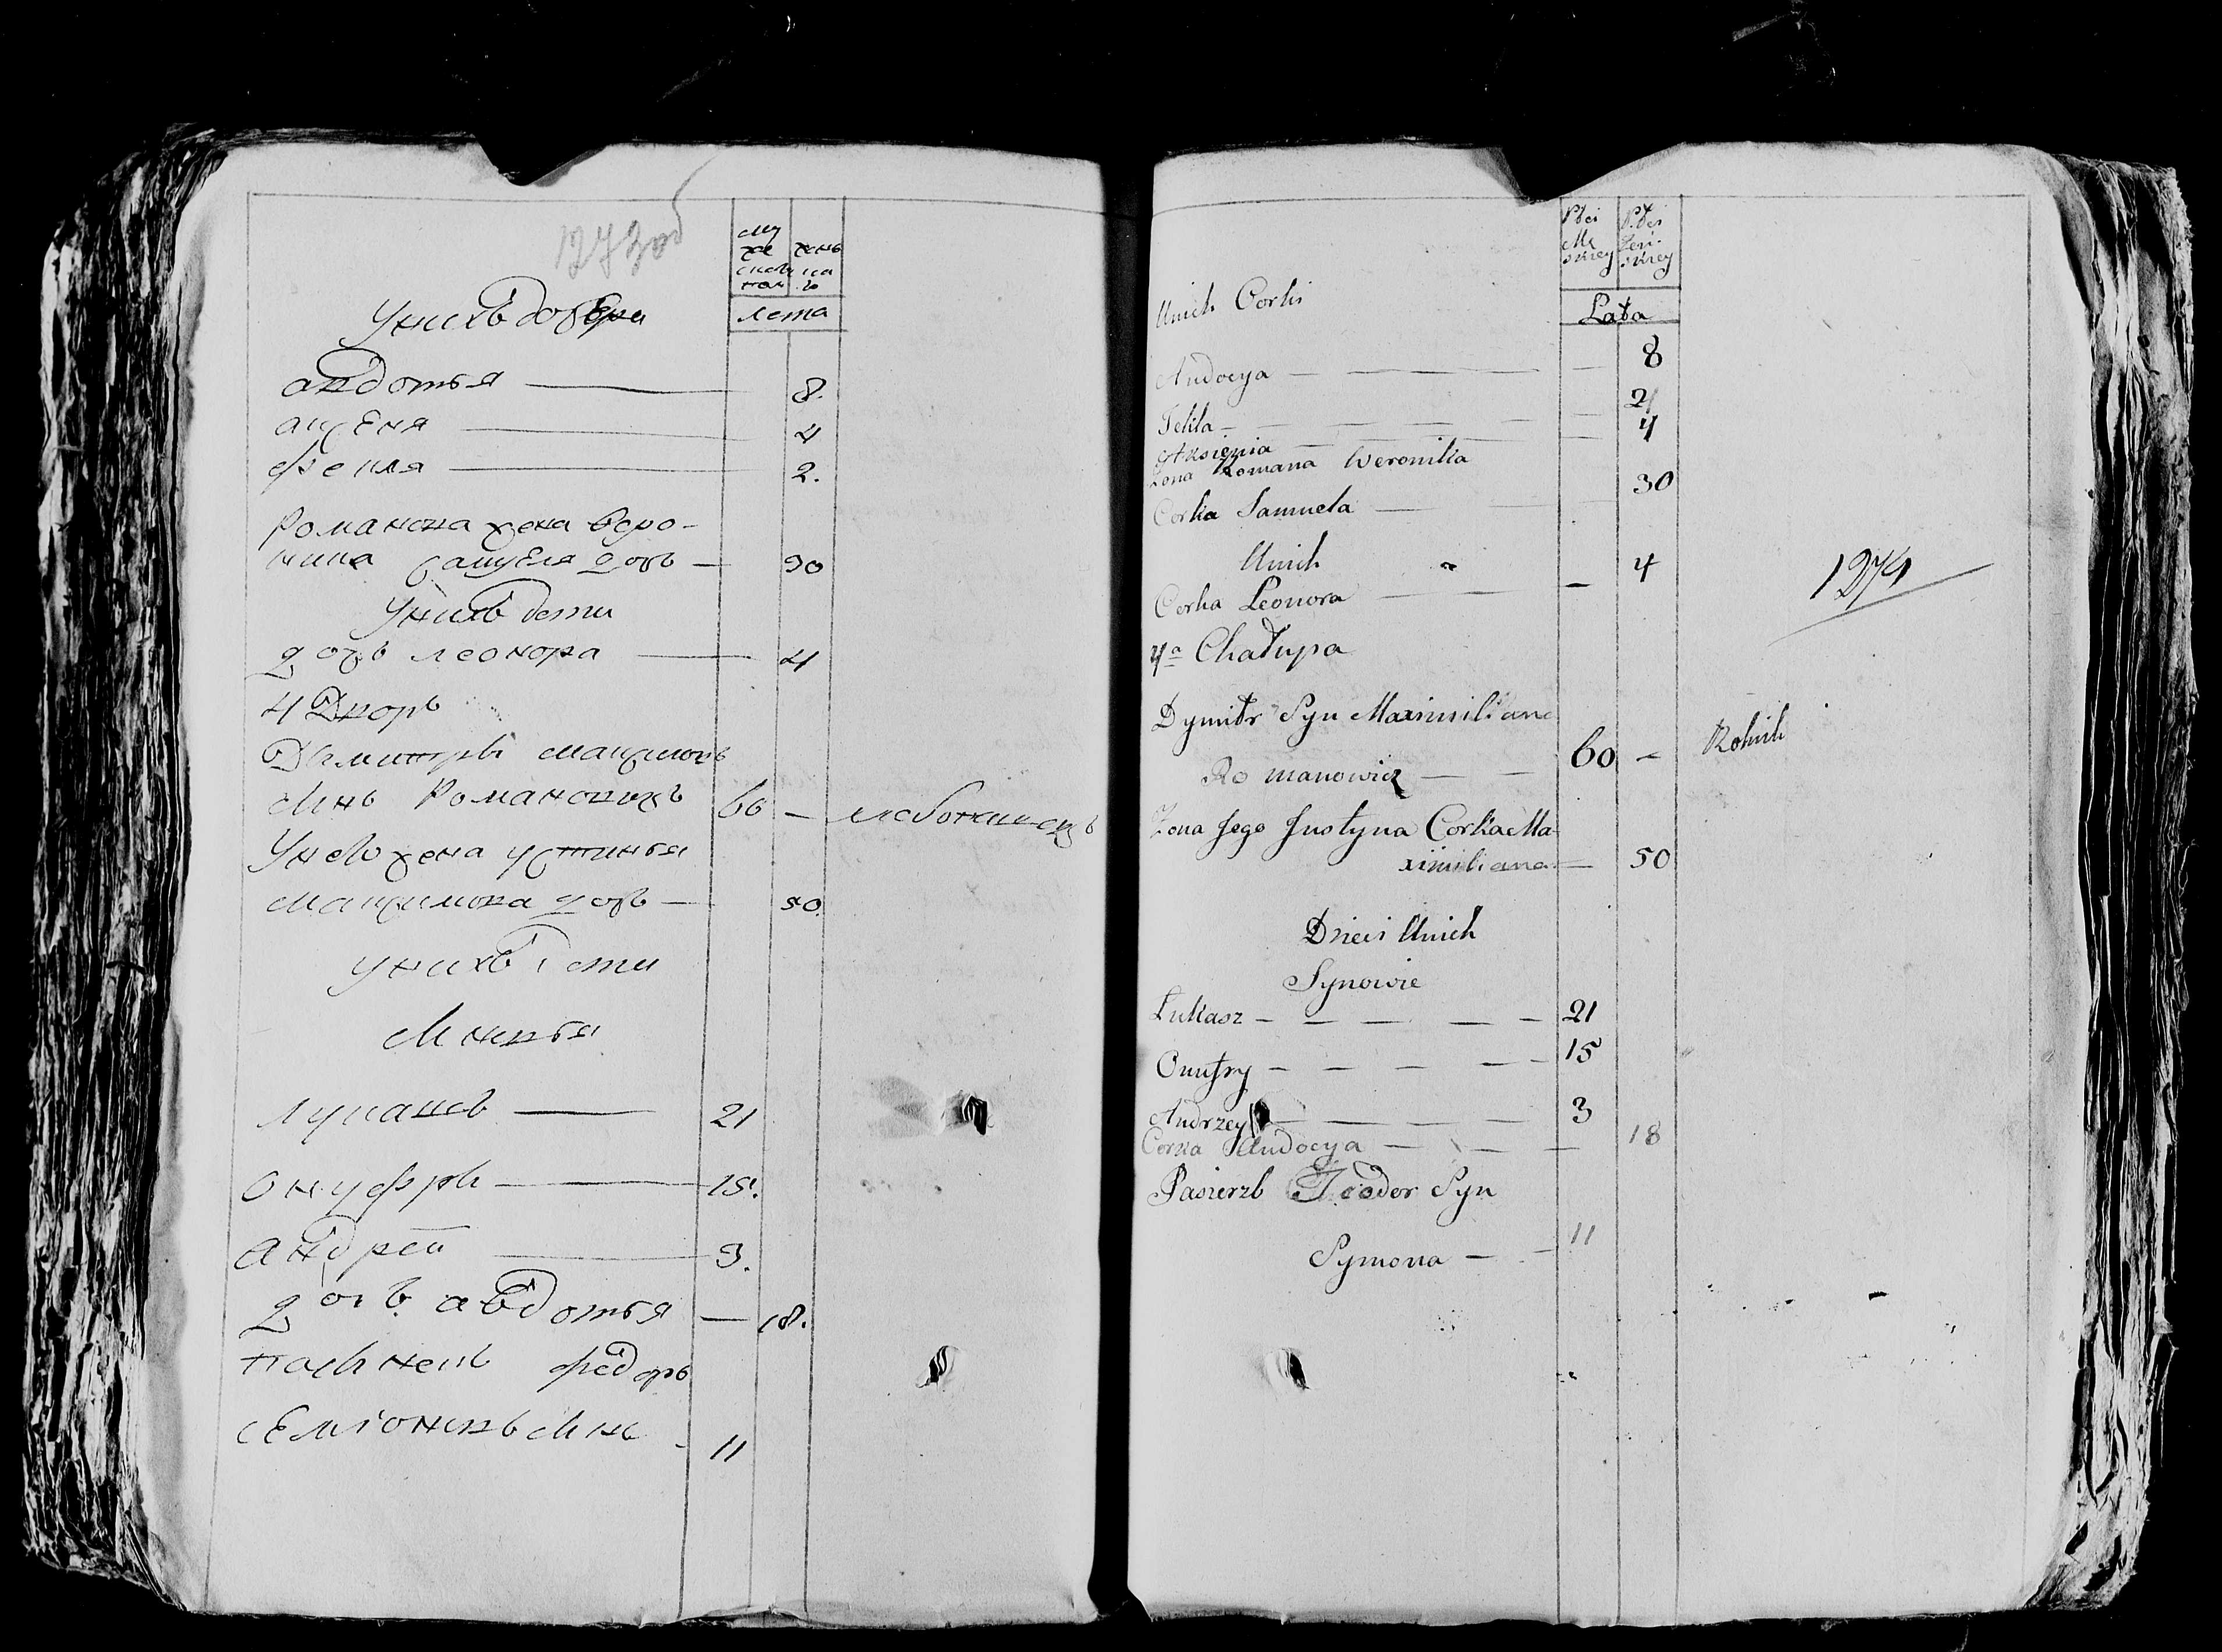 1273об
му
же
ска
пол
женс
ка
го
лета
У нихъ дочери
авдотья — 8.
аксеня — 4
фекла — 2.
Романова жена веро-
ника самуеля дочь — 30
У нихъ дети
дочь леонора — 4
4 Дворъ
Дмитръ максимовъ
сынъ Романовичъ 60 —
У него жена устинья
максимова дочь — 50.
у нихъ дети
сыновья
лукашъ — 21
онуфрій — 15.
андрей — 3.
дочь авдотья — 18.
пасынокъ федоръ
семіоновъ сынъ - 11
Płci
Mę
skiey
Płci
Żeń-
skiey
Lata
Unich Corki
Audocya — 8
Tekla — 2
Aksienia — 4
Zona Romana Weronika
Corka Samuela — 30
Unich
Corka Leonora — 4
1274
4ª Chałupa
Dymitr Syn Maximiliana
Romanowicz — 60 — Rolnik
Zona Jego Justyna Corka Ma-
ximiliana — 50
Dzieci Unich
Synowie
Lukasz — 21
Onufry — 15
Andrzey — 3
Corka Audocya — 18
Pasierzb Teodor Syn
Symona — 11